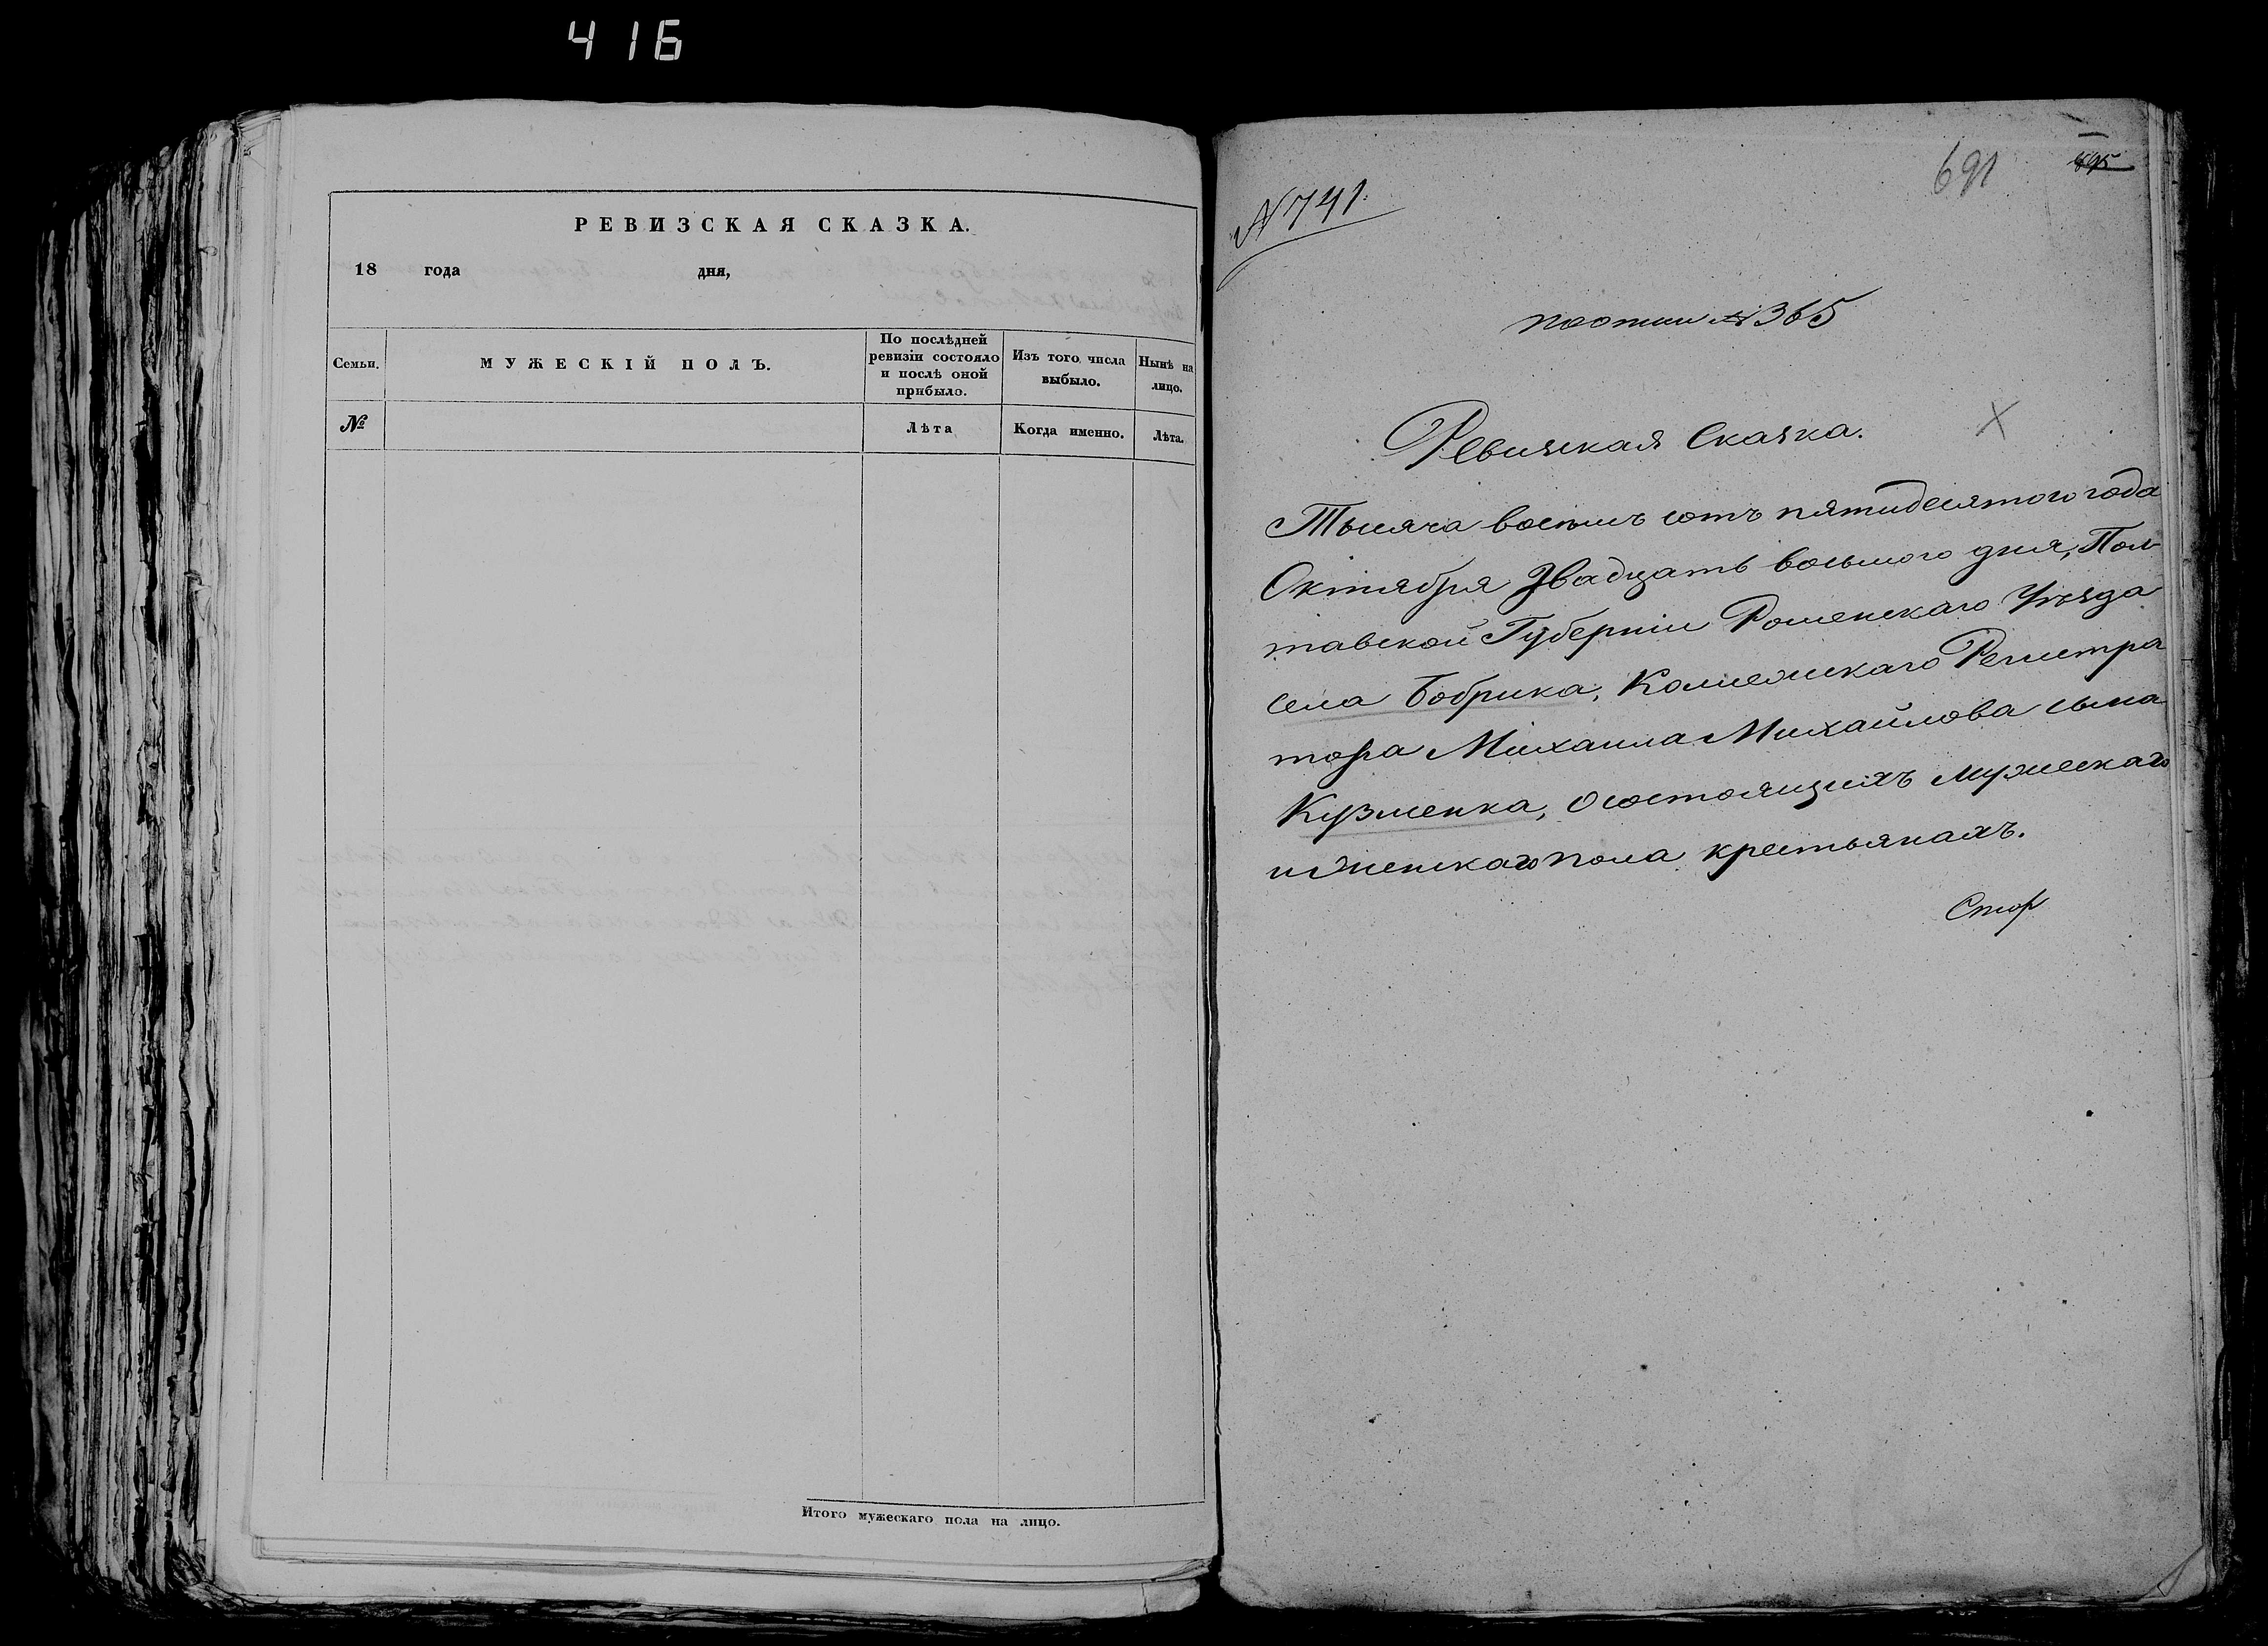 416
РЕВИЗСКАЯ СКАЗКА.
18 года дня,
Семьи.
МУЖЕСКІЙ ПОЛЪ.
По послѣдней
ревизіи состояло
и послѣ оной
прибыло.
Изъ того числа
выбыло.
Нынѣ на
лицо.
№
Лѣта
Когда именно.
Лѣта.
Итого мужескаго пола на лицо.
691
N 741.
№ 365
Ревизская Сказка.
Тысяча восемь сотъ пятидесятого года
Октября двадцать восьмого дня, Пол-
тавской Губерніи Роменскаго Уѣзда
села Бобрика, Колежскаго Регистра
тора Михаила Михайлова сына
Кузменка, О состоящихъ мужескаго
и женскаго пола крестьянахъ.